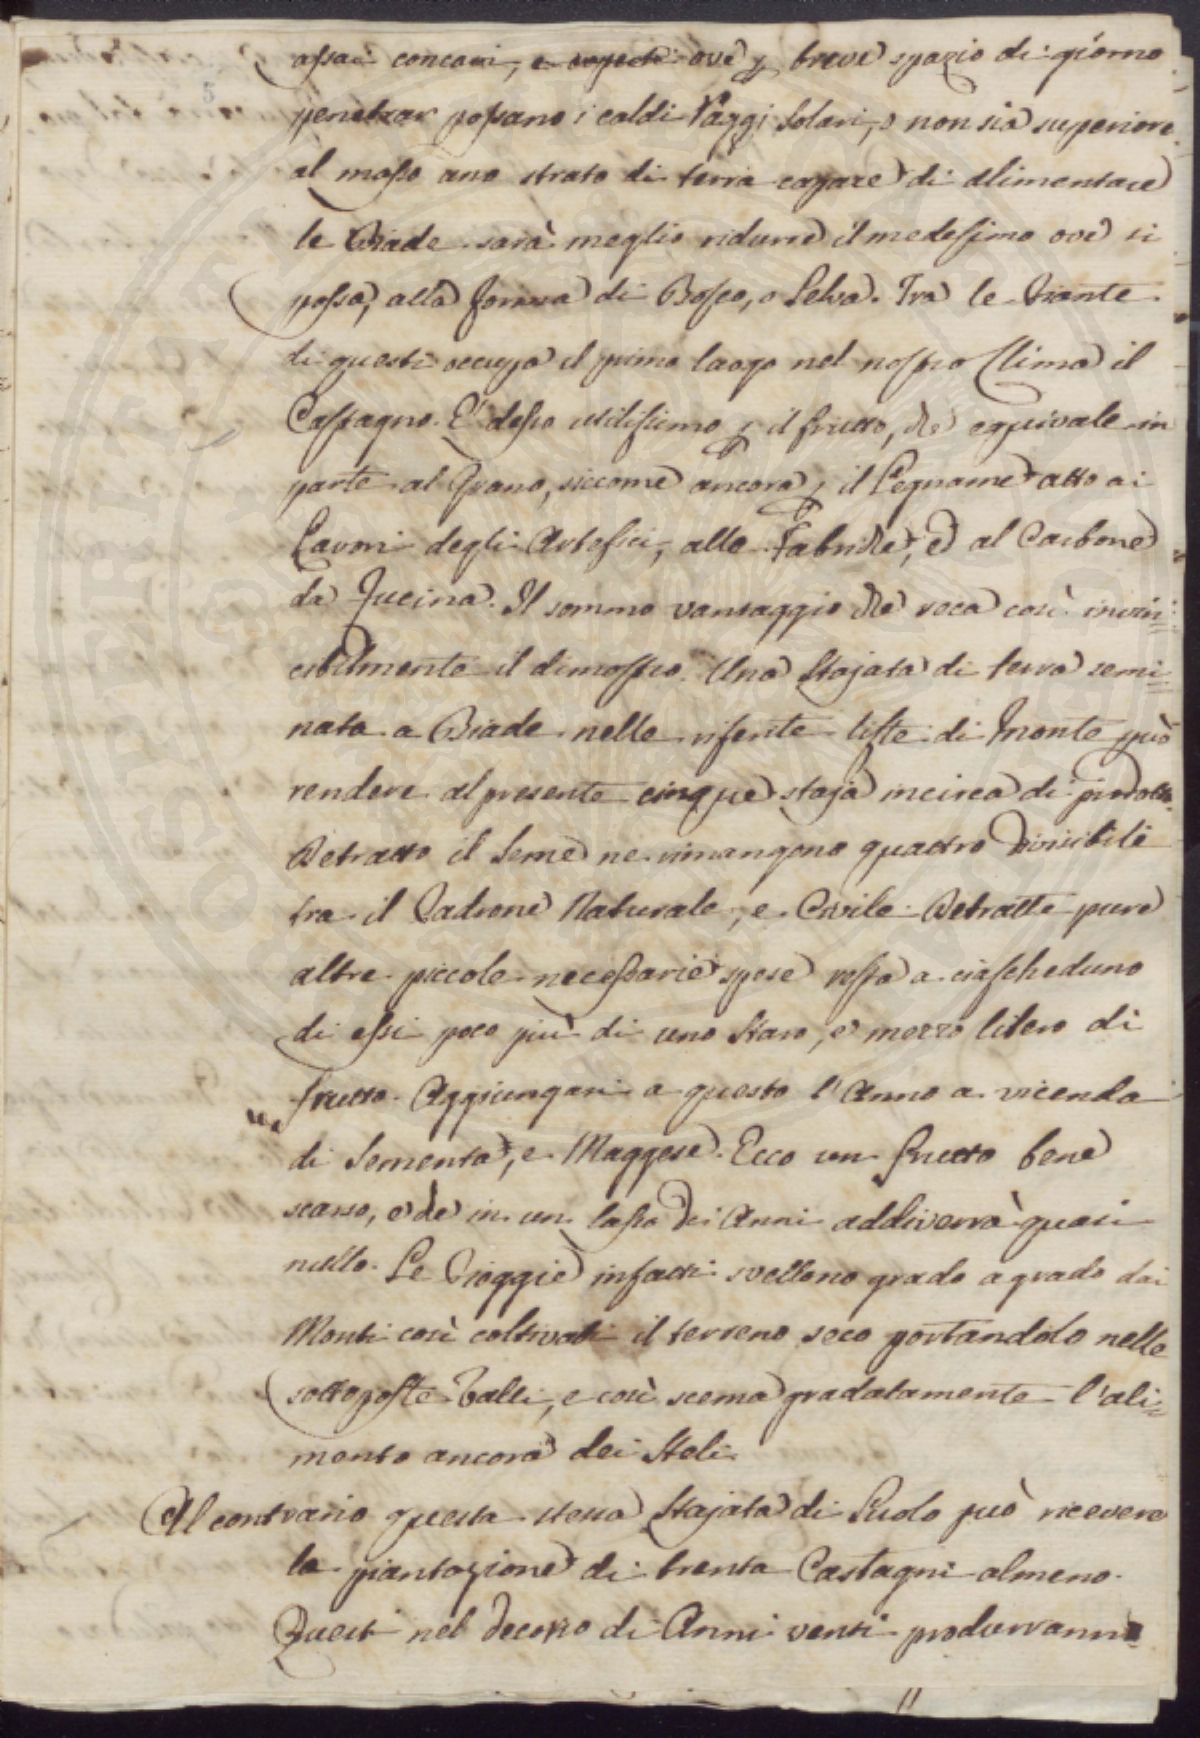 assai concavi, e coperti ove p breve spazio di giorno
penetrar possano i caldi Raggi Solari, o non sia superiore
al masso uno strato di terra capace di alimentare
le Biade sarà meglio ridurre il medesimo ove si
possa, alla forma di Bosco, o Selva. Tra le Piante
di questi occupa il primo luogo nel nostro Clima il
Castagno. E' desso utilissimo p il frutto, che equivale in
parte al Grano, siccome ancora p il Legname atto ai
Lavori degli Artefici, alle Fabriche, e al Carbone
da Fucina. Il sommo vantaggio che reca così invin=
cibilmente il dimostro. Una Stajata di terra semi=
nata a Biade nelle riferite liste di Monte può
rendere al presente cinque staja incirca di prodotto.
Detratto il Seme ne rimangono quattro divisibili
tra il Padrone Naturale, e Civile. Detratte pure
altre piccole necessarie spese resta a ciascheduno
di essi poco più di uno Staro, e mezzo libero di
frutto. Aggiungasi a questo l'Anno a vicenda
di Sementa, e Maggese. Ecco un frutto bene
scarso, e che in un lasso di Anni addiverrà quasi
nullo. Le Pioggie infatti svellono grado a grado dai
Monti così coltivati il terreno seco portandolo nelle
sottoposte Valli, e così scema gradatamente l'ali=
mento ancora dei Steli.
Al contrario questa stessa Stajata di Suolo può ricevere
la piantazione di trenta Castagni almeno.
Questi nel decorso di Anni venti produrranno